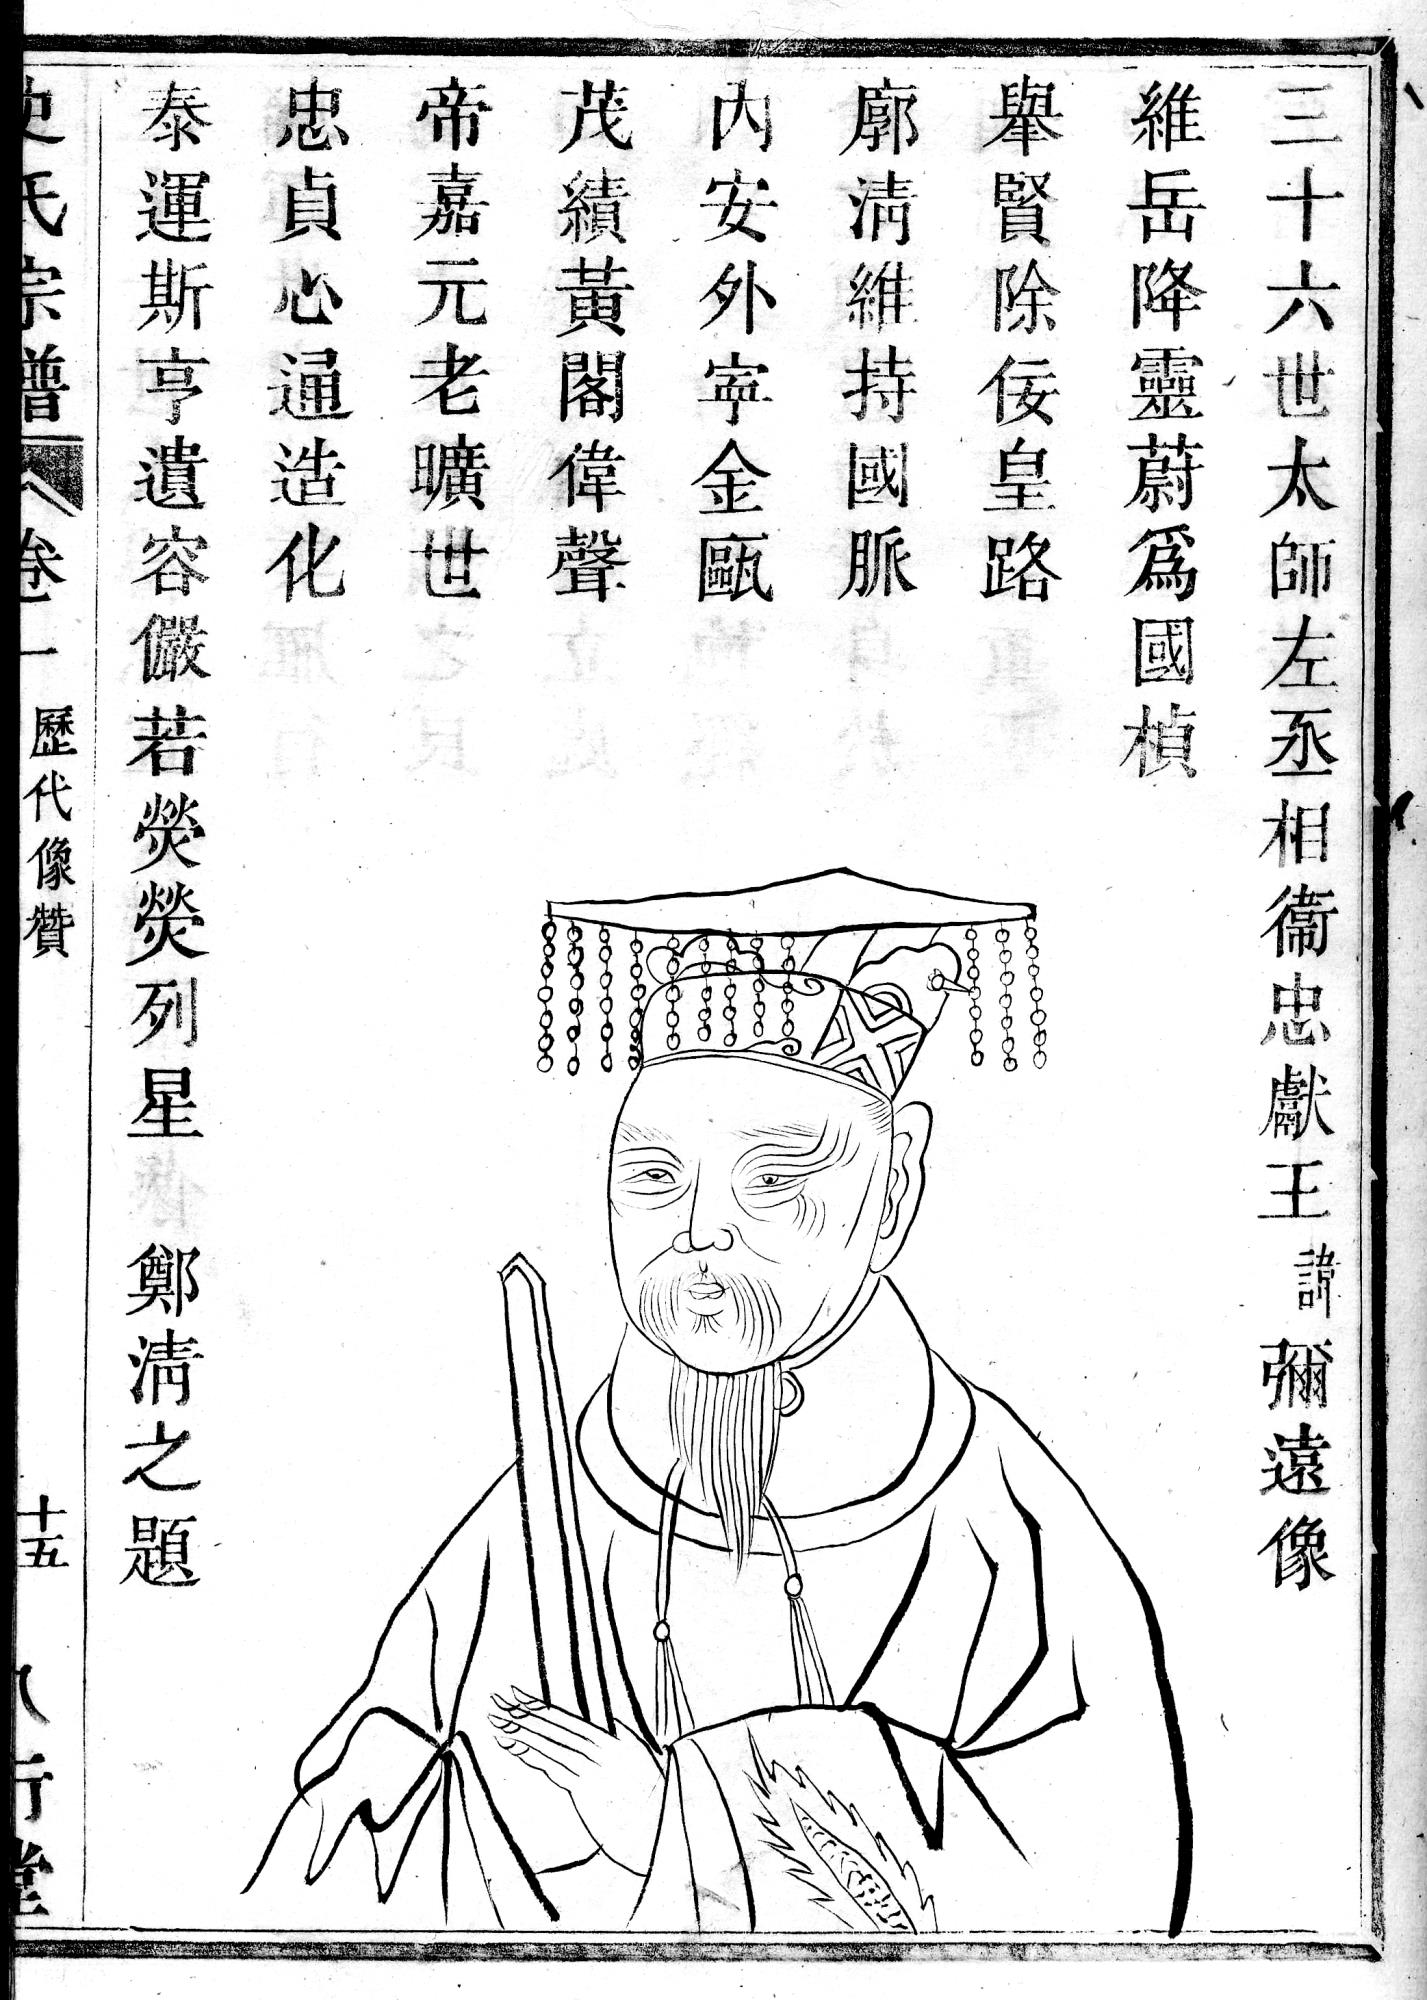 三十六世太師左丞相衞忠獻王諱彌遠像
維岳降靈蔚爲國楨
舉賢除佞皇路
廓淸維持國脈
內安外寧金甌
茂績黃閣偉聲
帝嘉元老曠世
忠貞心通造化
泰運斯亨遺容儼若熒熒列星 鄭淸之題
史氏宗譜 卷一 歷代像贊 十五 八行堂